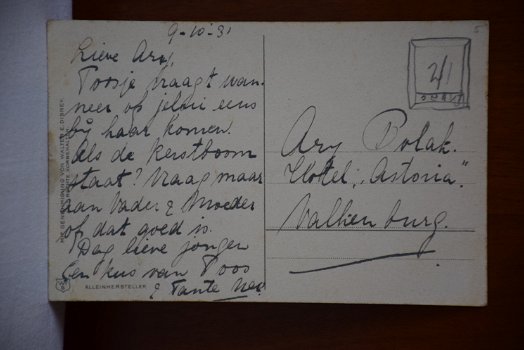 9-10-31
Lieve Ary,
Toosje vraagt wan-
neer op jullie eens
bij haar komen.
Als de kerstboom
staat? Vraag maar
aan Vader & Moeder
of dat goed is.
Dag lieve jongen
Een kus van Toos
& Tante
Ary Polak.
Hotel "Astoria".
Valkenburg.
MIT GENEHMIGUNG VON WALTER E. DISNEY
ALLEINHERSTELLER